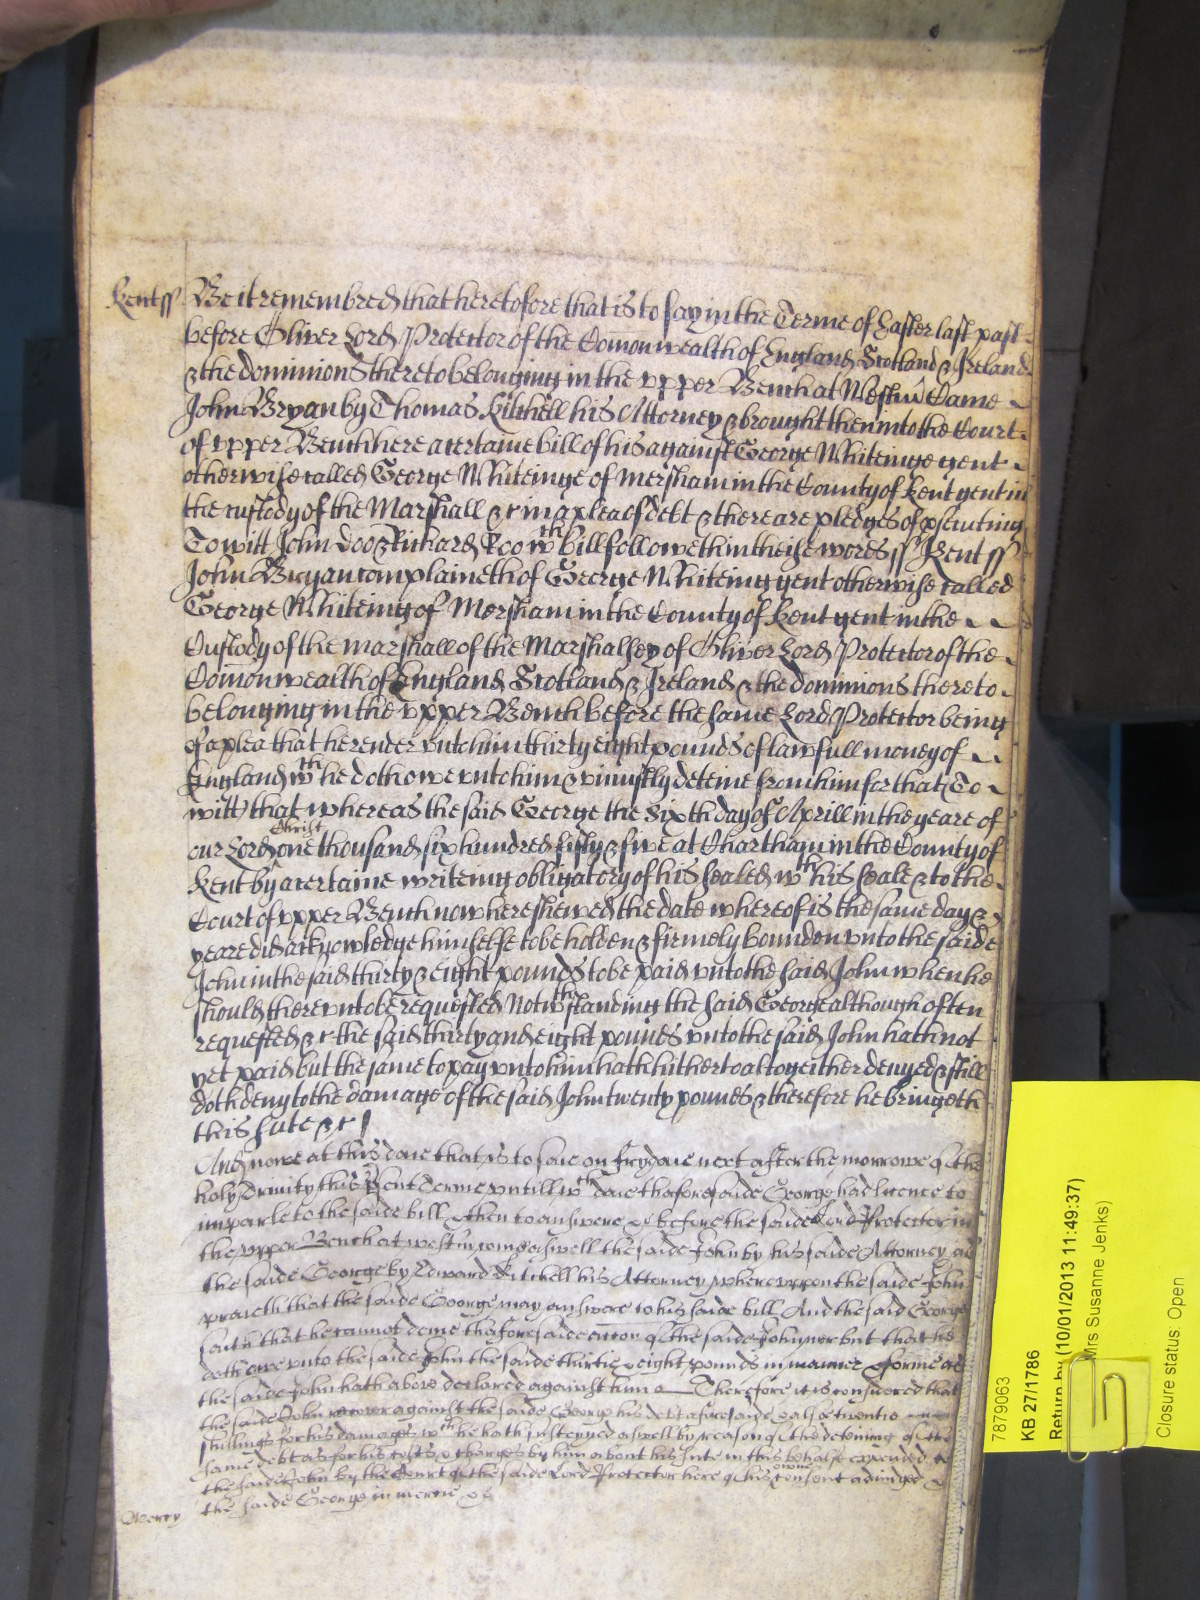 Kent ss Be it remembred that heretofore that is to say in the Terme of Easter last past
before Oliver Lord Protector of the Com̄onwealth of England Scotland & Ireland
& the dominions thereto belonging in the vpper Bench at Westm̄ Came
John Bryan by Thomas Kitchell his Attorney & brought then into the Court
of vpper Bench here a certaine bill of his against George Whiteinge gent
otherwise called George Whiteinge of Mersham in the County of Kent gent in
the custody of the Marshall &c in a plea of debt & there are pledges of psecuting
To witt John Doo & Richard Roo wth bill followeth in theise words ss Kent ss
John Bryan complaineth of George Whiteing gent otherwise called
George Whiteing of Mersham in the County of Kent gent in the
Custody of the marshall of the Marshalsey of Oliver Lord Protector of the
Com̄onwealth of England Scotland & Ireland & the dominions thereto
belonging in the vpper Bench before the same Lord Protector being
of a plea that he render vnto him thirty eight pounds of lawfull money of
England wth he doth owe vnto him & viniustly deteine from him for that To
witt that whereas the said George the Sixth day of Aprill in the yeare of
our Lord Christ one thousand six hundred fifty & five at Chartham in the County of
Kent by a certaine writeing obligatory of his sealed wth his seale & to the
Court of vpper Bench now here shewed the date whereof is the same day &
yeare did acknowledge himselfe to be holden & firmely bounden vnto the saide
John in the said thirty & eight pounds to be paid vnto the said John when he
should therevnto be requested Notwthstanding the said George although often
requested &c the said thirty and eight pounds vnto the said John hath not
yet paid but the same to pay vnto him hath hitherto altogeither denyed & still
doth deny to the damage of the said John twenty pounds & therefore he bringeth
this sute &c
And nowe at this daie that is to saie on frydaie next after the morrowe of the
holy Trinity this psent Terme vntill wch daie thaforesaide George had licence to
imparle to the saide bill & then to answere &c before the saide Lord Protector in
the vpper Bench at westm̄ come aswell the saide John by his saide Attorney as
the saide George by Edward Kitchell his Attorney & wherevppon the saide John
prayeth that the saide George may answere to his saide bill And the said George
saith that he cannot denie thaforesaide acc̄on of the saide John nor but that he
doth owe vnto the saide John the saide thirtie & eight pounds in manner & forme as
the saide John hath above declared against him Therefore it is considered that
the saide John recover against the saide George his debt aforesaide & alsoe twentie
shillings for his damages wch he hath susteyned aswell by reason of the deteining of the
same debt as for his costs & charges by him about his sute in this behalfe expended to
the saide John by the Court of the saide Lord Protector here of his owne consent adiudged &
Mercy the saide George in mercie &c
7879063
KB 27/1786
Return by (10/01/2013 11:49:37)
Mrs Susanne Jenks)
Closure status: Open